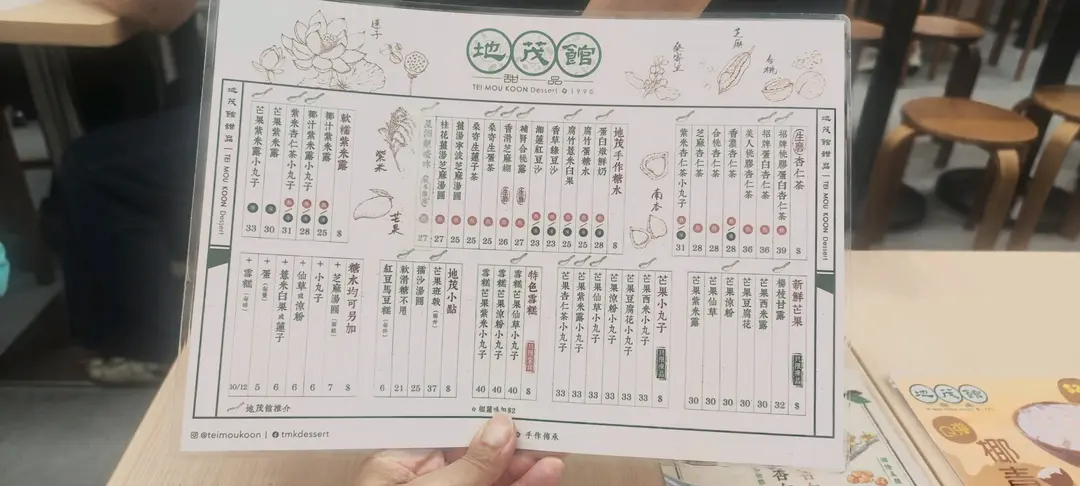 地茂館
甜品
TEI MOU KOON Dessert 1990
蓮子
桑寄生
芝麻
合桃
紫米
芒果
南杏
地茂館甜品 | TEI MOU KOON Dessert
地茂館甜品 | TEI MOU KOON Dessert
生磨 杏仁茶 $
招牌桃膠蛋白杏仁茶 39
招牌蛋白杏仁茶 36
美人桃膠杏仁茶 36
香濃杏仁茶 28
合桃杏仁茶 28
芝麻杏仁茶 28
紫米杏仁茶小丸子 31
地茂手作糖水 $
蛋白燉鮮奶 28
腐竹蛋糖水 25
腐竹薏米白果 25
香草綠豆沙 23
湘蓮紅豆沙 23
補腎合桃露 生磨 27
香滑芝麻糊 生磨 26
桑寄生蛋茶 25
桑寄生蓮子茶 25
薑湯寧波芝麻湯圓 25
桂花薑湯芝麻湯圓 27
27
軟糯紫米露 $
椰汁紫米露 25
椰汁紫米露小丸子 28
紫米杏仁茶小丸子 31
芒果紫米露 30
芒果紫米露小丸子 33
新鮮芒果 $
楊枝甘露 32
芒果西米露 30
芒果豆腐花 30
芒果涼粉 30
芒果仙草 30
芒果紫米露 30
芒果小丸子 $
芒果西米小丸子 33
芒果豆腐花小丸子 33
芒果涼粉小丸子 33
芒果仙草小丸子 33
芒果紫米露小丸子 33
芒果杏仁茶小丸子 33
特色雪糕 $
雪糕芒果仙草小丸子 40
雪糕芒果涼粉小丸子 40
雪糕芒果紫米小丸子 40
地茂小點 $
芒果班戟 37
擂沙湯圓 25
軟滑糖不甩 21
紅豆馬豆糕 6
糖水均可另加 $
+芝麻湯圓 7
+小丸子 6
+仙草或涼粉 6
+薏米白果或蓮子 6
+蛋 5
+雪糕 10/12
地茂館推介
手作傳承
@teimoukoon | tmkdessert
地茂館
椰青